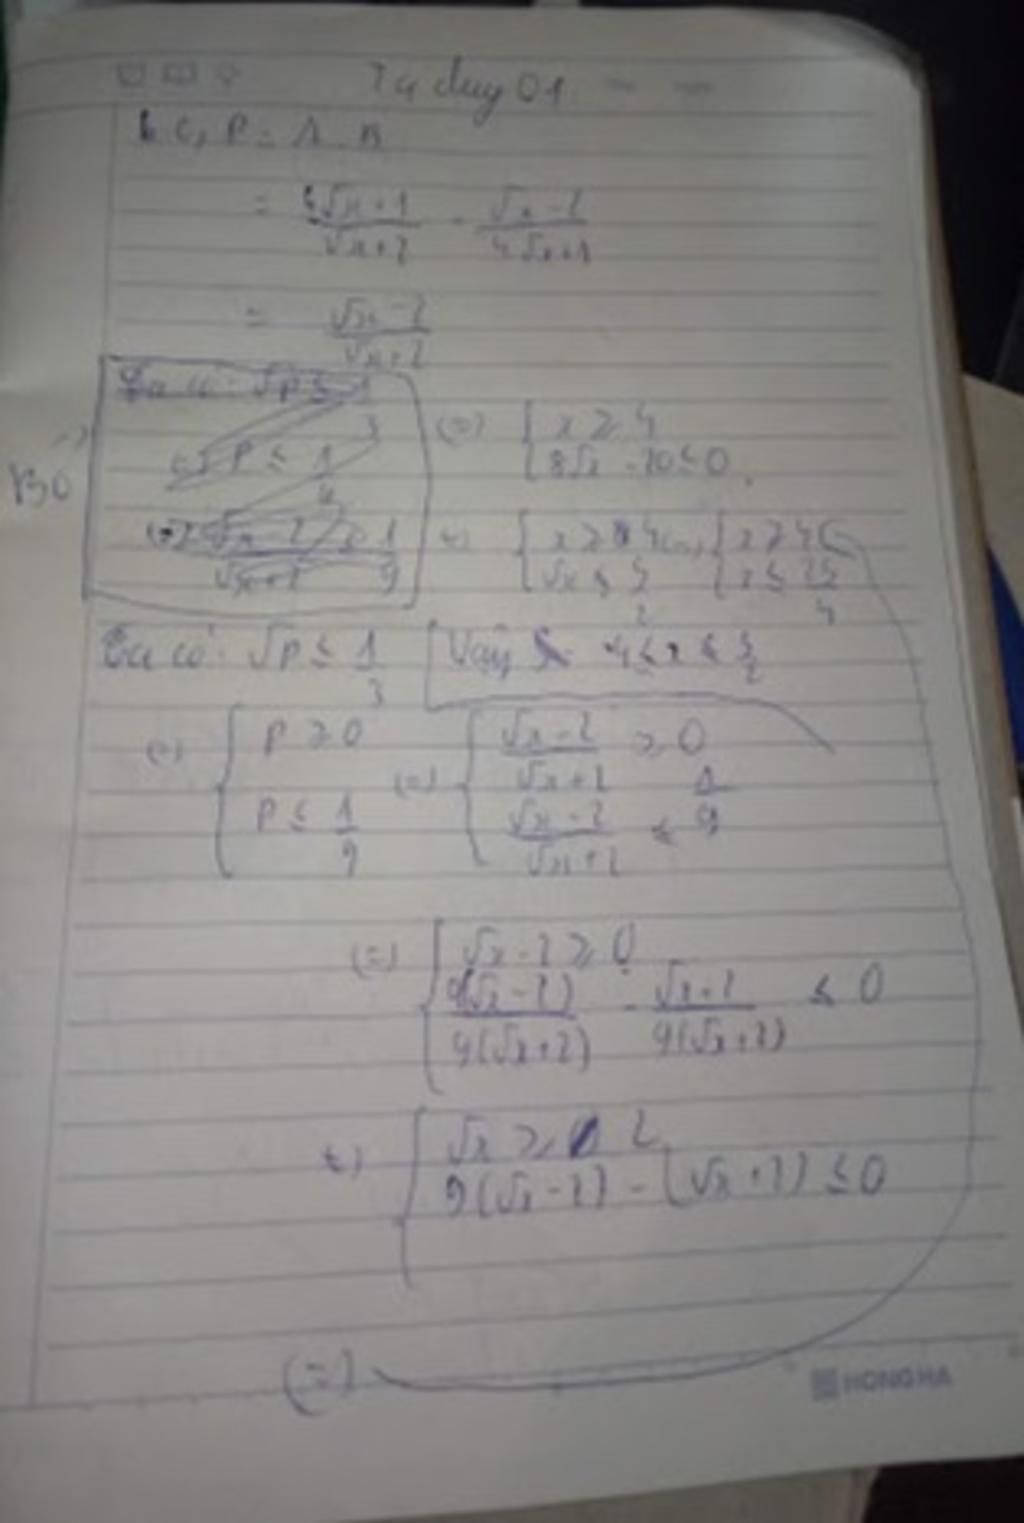 Tư duy 01
c, P = A . B
= 4√x+1/√x+2 · √x-2/4√x+1
= √x-2/√x+2
Ta có: √P ≤ 1/3
(=) P ≤ 1
(=) √x-2/√x+2 ≥ 1/9
Bỏ
(=) { x ≥ 4
8√x - 20 ≤ 0
{ x ≥ 4 (=) { x ≥ 4
√x ≤ 5/2 x ≤ 25/4
Ta có: √P ≤ 1/3
Vậy 4 ≤ x ≤ 5/2
(=) { P ≥ 0 (=) { √x-2/√x+2 ≥ 0
P ≤ 1/9 √x-2/√x+2 ≤ 1/9
(=) { √x-2 ≥ 0
9(√x-2)/9(√x+2) - √x+2/9(√x+2) ≤ 0
{ √x ≥ 2
9(√x-2) - (√x+2) ≤ 0
(=)
HONG HA